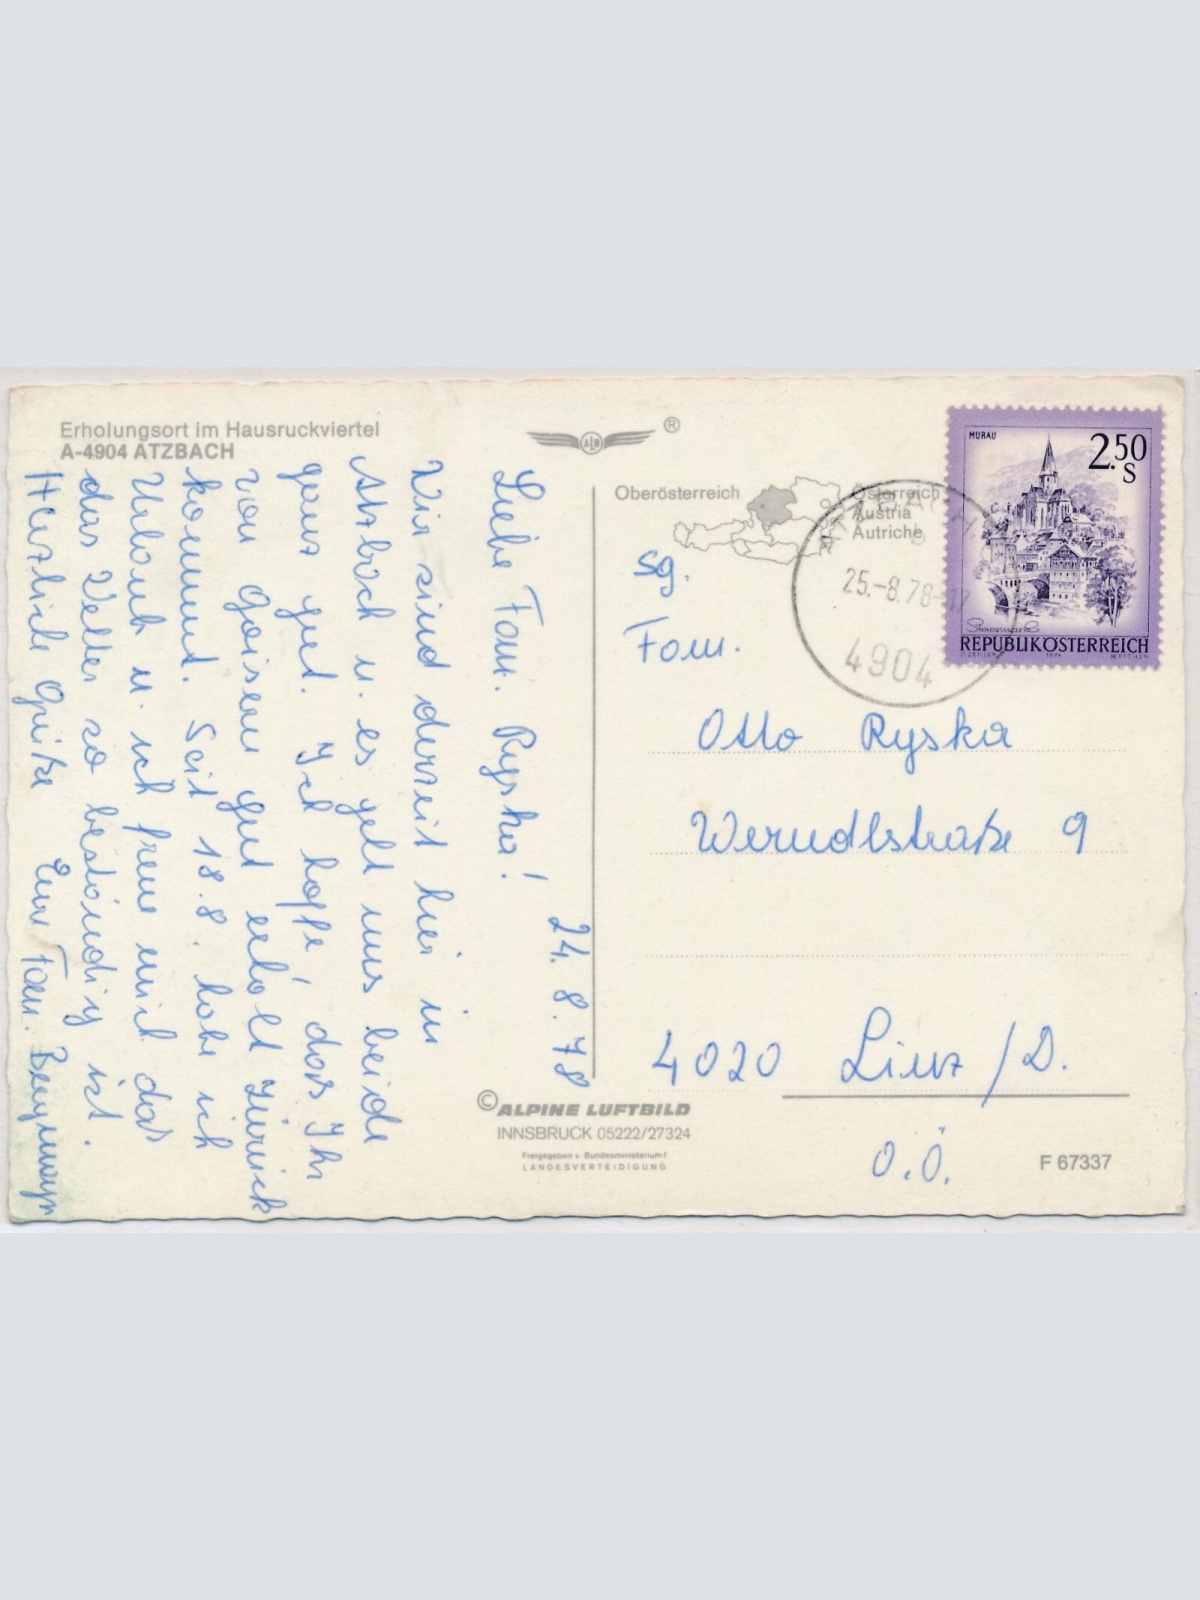 Erholungsort im Hausruckviertel
A-4904 ATZBACH
ALB
®
24.8.78
Liebe Fam. Ryska!
Wir sind derzeit hier in
Atzbach u. es geht uns beide
ganz gut. Ich hoffe, das Ihr
von Goisern gut erholt zurück
kommt. Seit 18.8. habe ich
Urlaub u. ich freue mich das
das Wetter so beständig ist.
Herzliche Grüße Eure Fam.
Oberösterreich
Österreich
Austria
Autriche
ATZBACH
25.-8.78
4904
MURAU
2.50
S
REPUBLIK ÖSTERREICH
Sg.
Fam.
Otto Ryska
Werndlstraße 9
4020 Linz /D.
O.Ö.
© ALPINE LUFTBILD
INNSBRUCK 05222/27324
Freigegeben v. Bundesministerium f.
LANDESVERTEIDIGUNG
F 67337